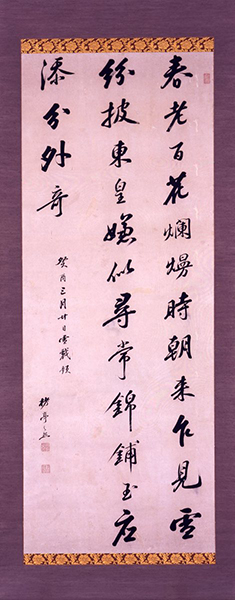 春老百花爛熳時朝来乍見雪
紛披東皇嫌似尋常錦鋪玉応
添分外奇
癸酉三月廿日雪戲題